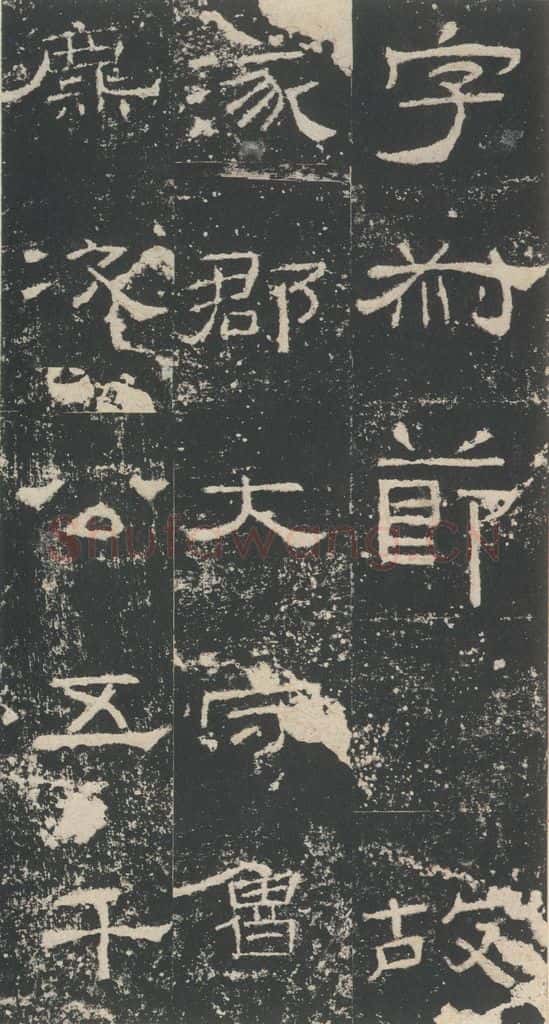 字叔節故
涿郡大守魯
麃次公五千
Shufawang.CN